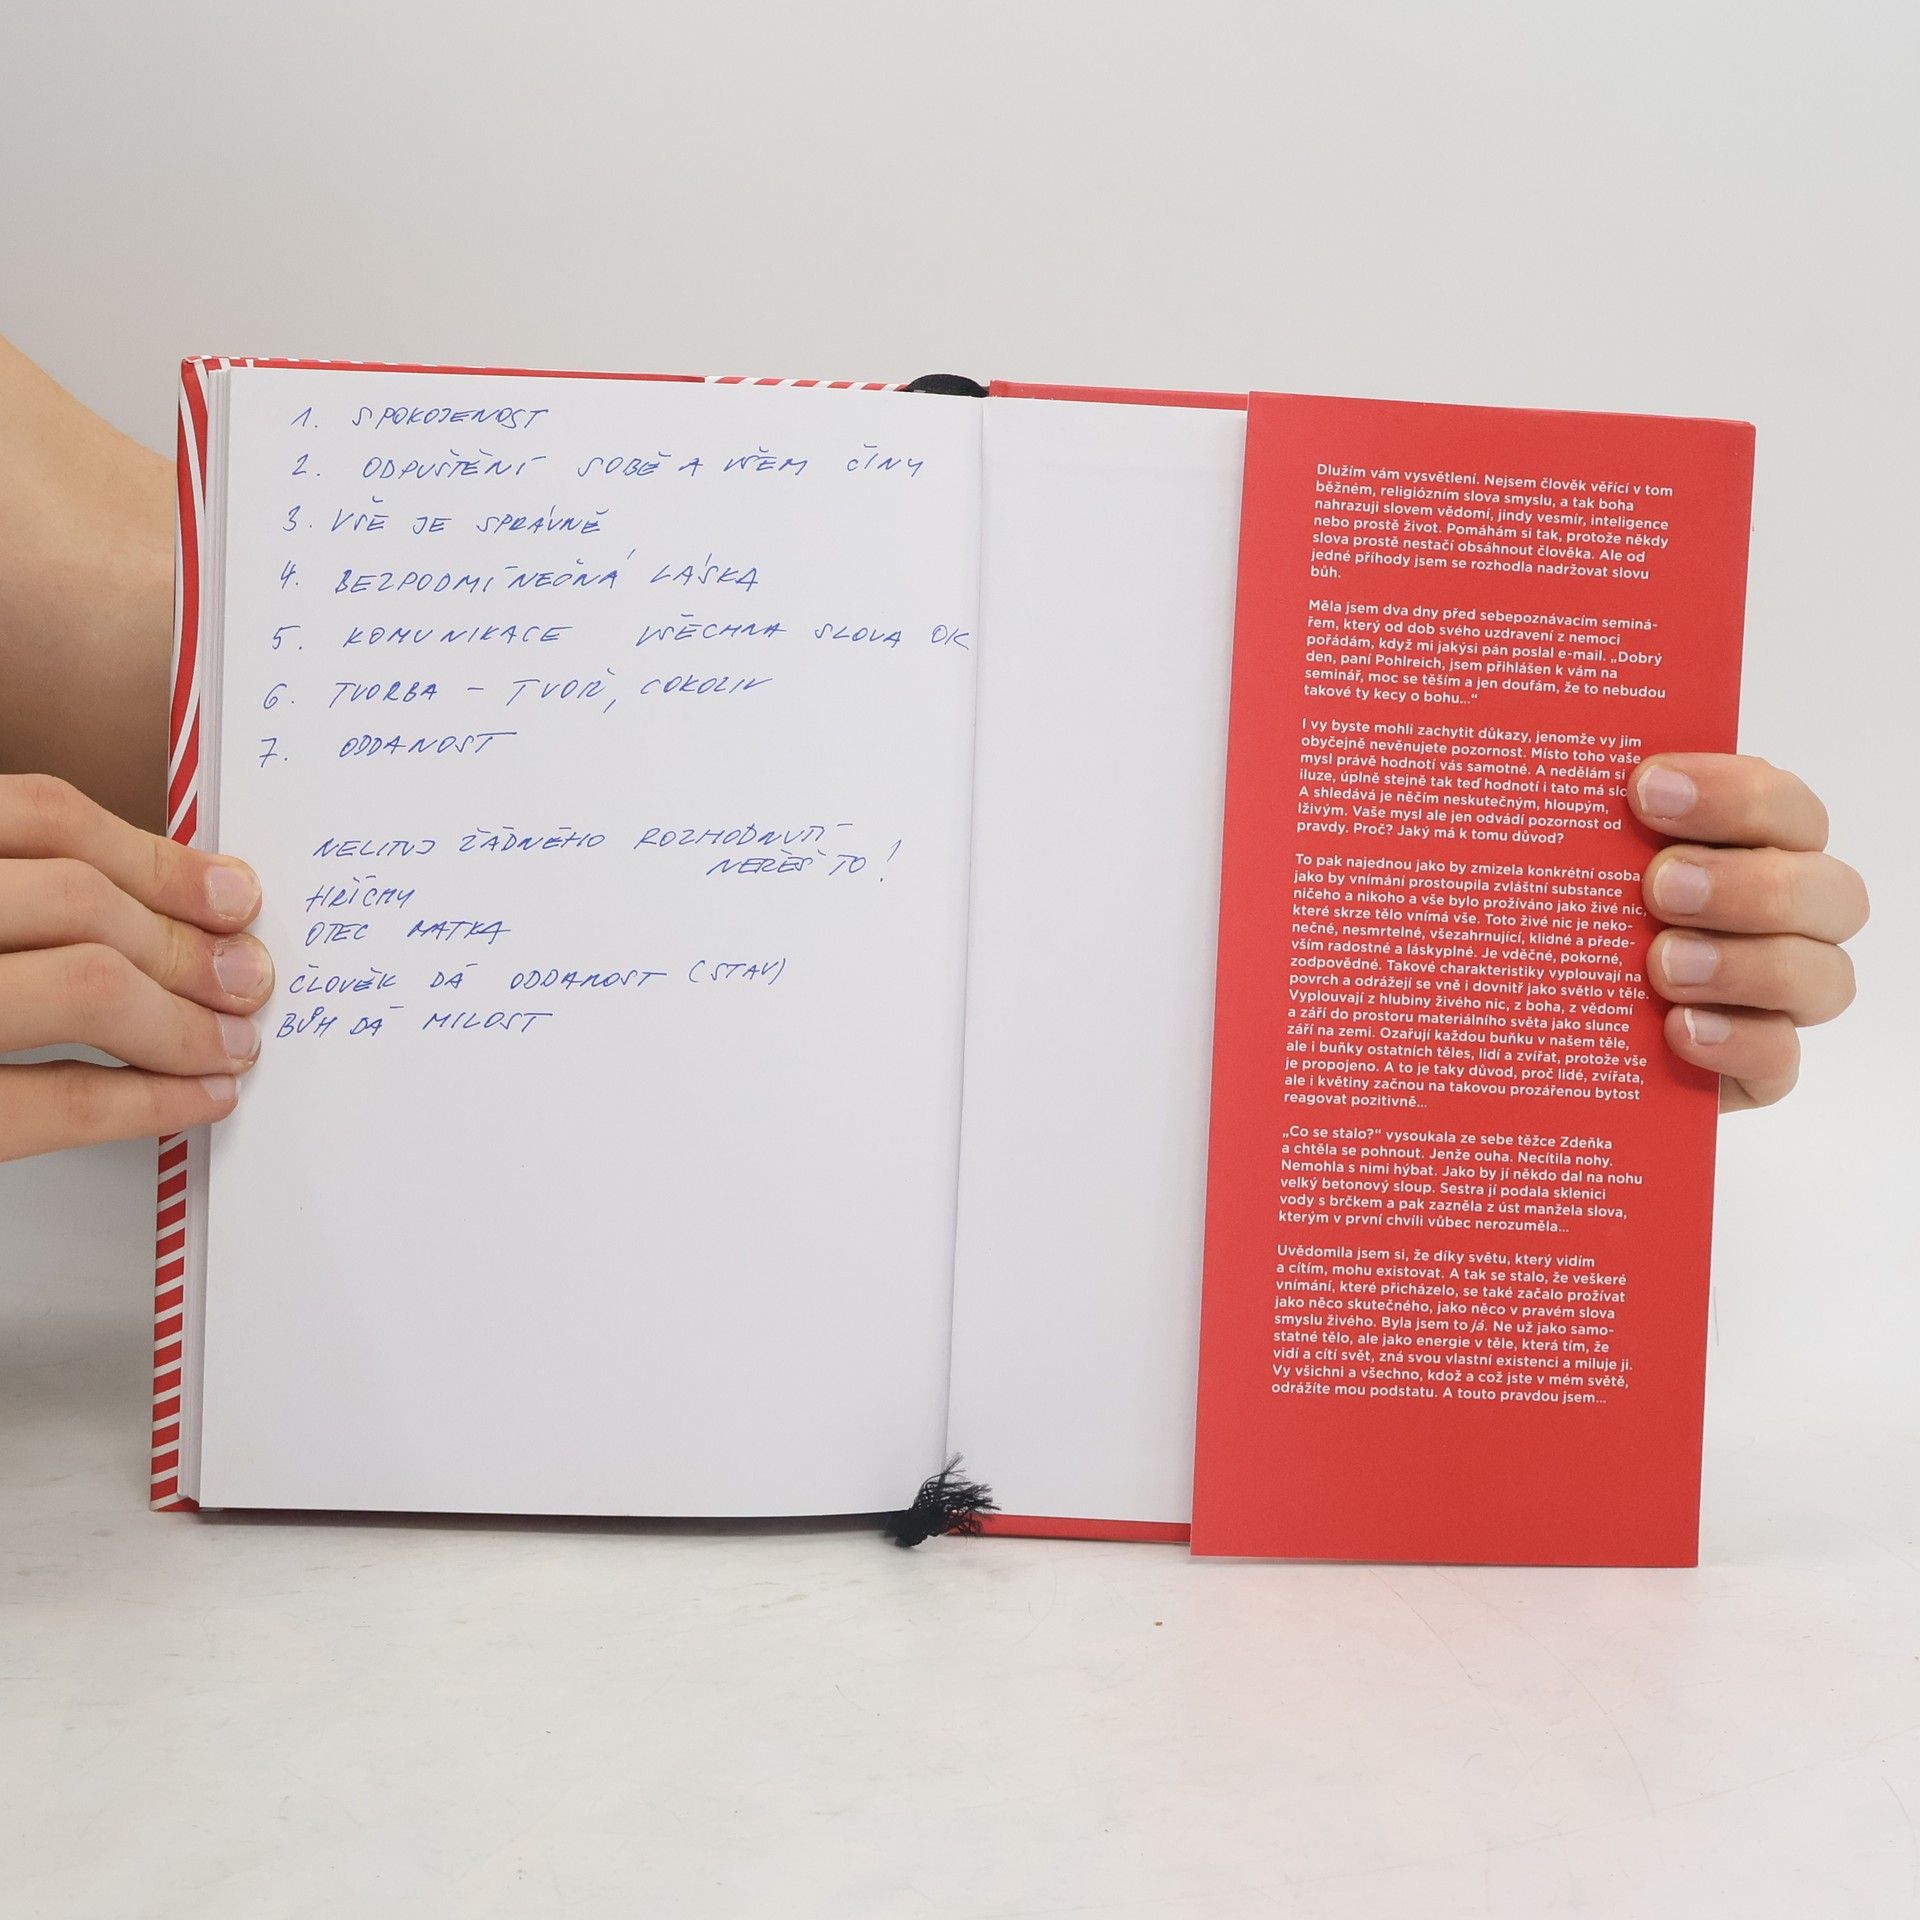 1. SPOKOJENOST
2. ODPUŠTĚNÍ SOBĚ A VŠEM ČINY
3. VŠE JE SPRÁVNĚ
4. BEZPODMÍNEČNÁ LÁSKA
5. KOMUNIKACE VŠECHNA SLOVA OK
6. TVORBA – TVOŘ, COKOLIV
7. ODDANOST
NELITUJ ŽÁDNÉHO ROZHODNUTÍ
NEŘEŠ TO!
HŘÍCHY
OTEC MATKA
ČLOVĚK DÁ ODDANOST (STAV)
BŮH DÁ MILOST
Dlužím vám vysvětlení. Nejsem člověk věřící v tom
běžném, religiózním slova smyslu, a tak boha
nahrazuji slovem vědomí, jindy vesmír, inteligence
nebo prostě život. Pomáhám si tak, protože někdy
slova prostě nestačí obsáhnout člověka. Ale od
jedné příhody jsem se rozhodla nadržovat slovu
bůh.
Měla jsem dva dny před sebepoznávacím seminá-
řem, který od dob svého uzdravení z nemoci
pořádám, když mi jakýsi pán poslal e-mail. „Dobrý
den, paní Pohlreich, jsem přihlášen k vám na
seminář, moc se těším a jen doufám, že to nebudou
takové ty kecy o bohu...“
I vy byste mohli zachytit důkazy, jenomže vy jim
obyčejně nevěnujete pozornost. Místo toho vaše
mysl právě hodnotí vás samotné. A nedělám si
iluze, úplně stejně tak teď hodnotí i tato má slo
A shledává je něčím neskutečným, hloupým,
lživým. Vaše mysl ale jen odvádí pozornost od
pravdy. Proč? Jaký má k tomu důvod?
To pak najednou jako by zmizela konkrétní osoba,
jako by vnímání prostoupila zvláštní substance
ničeho a nikoho a vše bylo prožíváno jako živé nic,
které skrze tělo vnímá vše. Toto živé nic je neko-
nečné, nesmrtelné, všezahrnující, klidné a přede-
vším radostné a láskyplné. Je vděčné, pokorné,
zodpovědné. Takové charakteristiky vyplouvají na
povrch a odrážejí se vně i dovnitř jako světlo v těle.
Vyplouvají z hlubiny živého nic, z boha, z vědomí
a září do prostoru materiálního světa jako slunce
září na zemi. Ozařují každou buňku v našem těle,
ale i buňky ostatních těles, lidí a zvířat, protože vše
je propojeno. A to je taky důvod, proč lidé, zvířata,
ale i květiny začnou na takovou prozářenou bytost
reagovat pozitivně...
„Co se stalo?“ vysoukala ze sebe těžce Zdeňka
a chtěla se pohnout. Jenže ouha. Necítila nohy.
Nemohla s nimi hýbat. Jako by jí někdo dal na nohu
velký betonový sloup. Sestra jí podala sklenici
vody s brčkem a pak zazněla z úst manžela slova,
kterým v první chvíli vůbec nerozuměla...
Uvědomila jsem si, že díky světu, který vidím
a cítím, mohu existovat. A tak se stalo, že veškeré
vnímání, které přicházelo, se také začalo prožívat
jako něco skutečného, jako něco v pravém slova
smyslu živého. Byla jsem to já. Ne už jako samo-
statné tělo, ale jako energie v těle, která tím, že
vidí a cítí svět, zná svou vlastní existenci a miluje ji.
Vy všichni a všechno, kdož a což jste v mém světě,
odrážíte mou podstatu. A touto pravdou jsem...